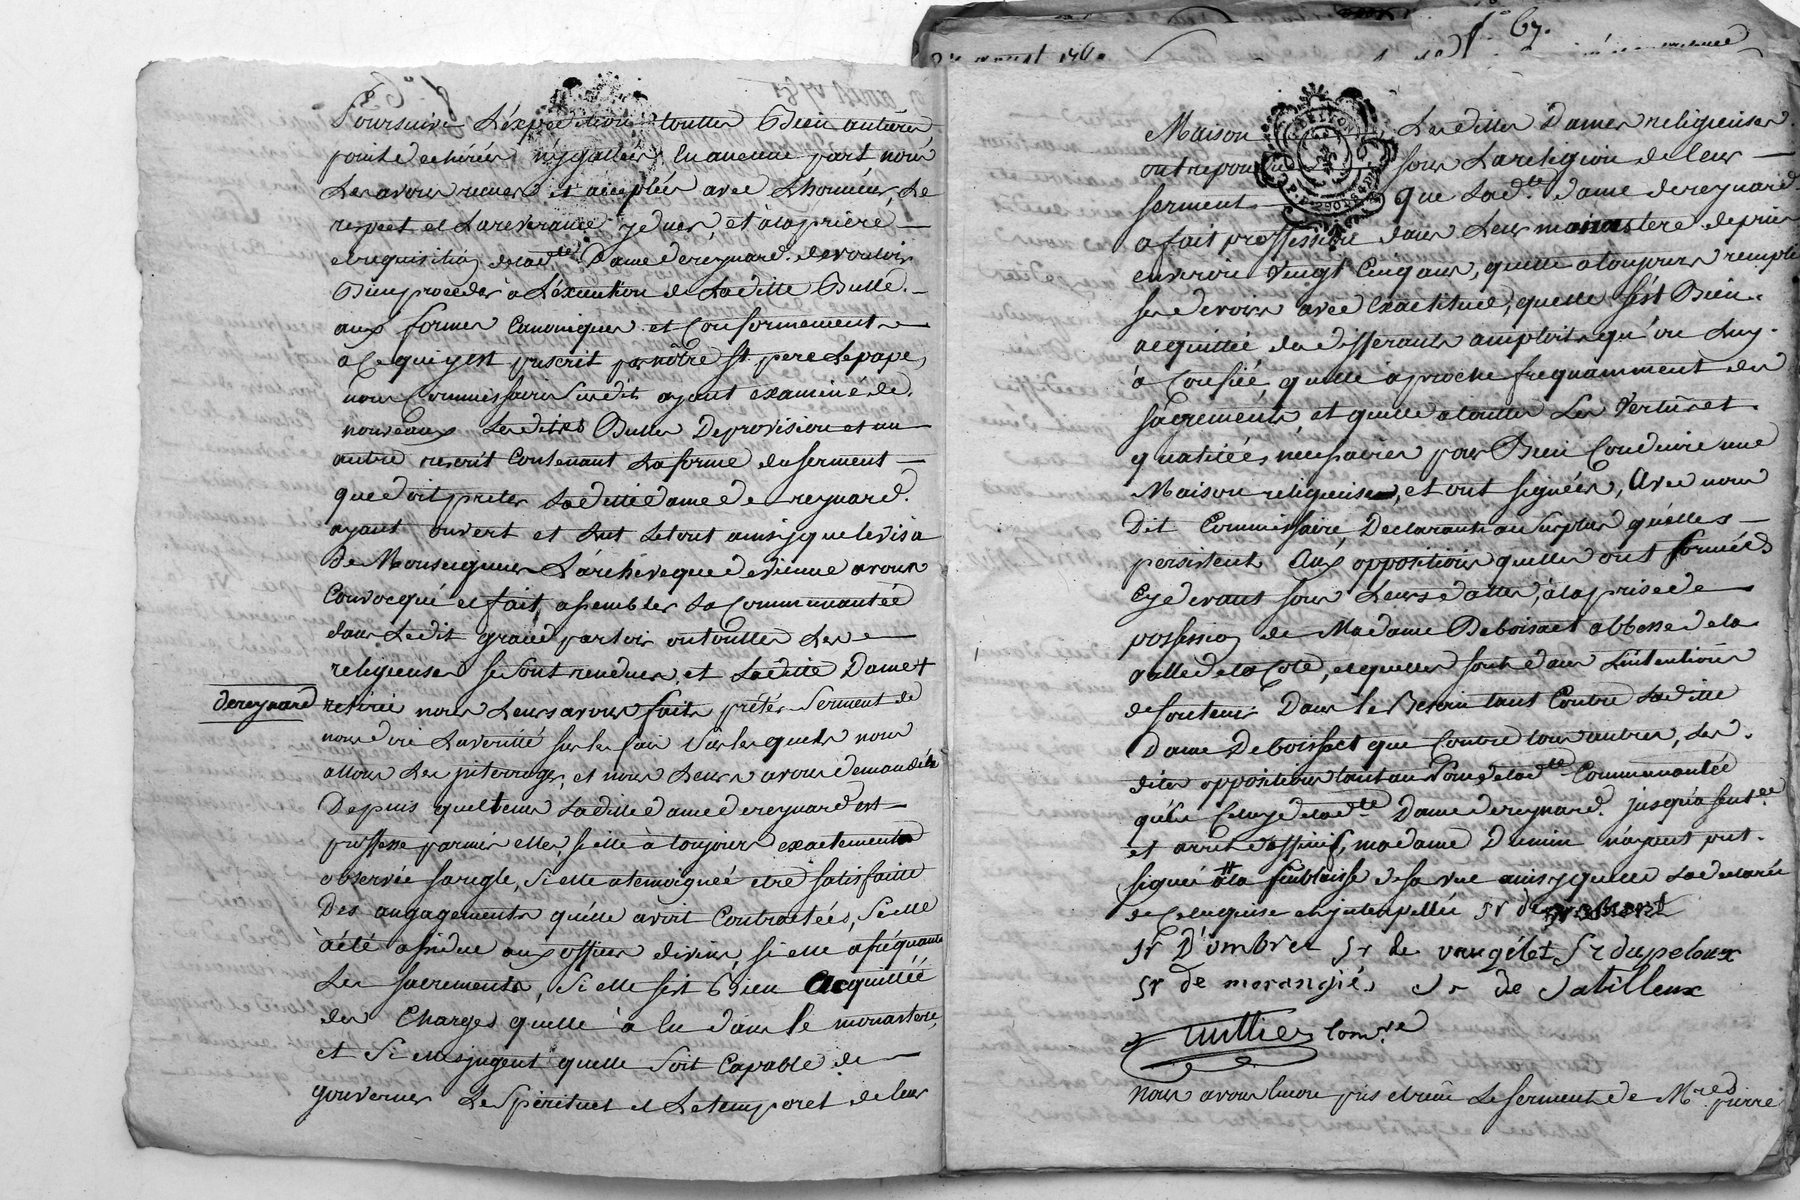 f.º 67.
Poursuivre L'éxpedition toutte Bien entiere
point dechirée n'y gattée en aucune part nous
Les avons recues et acceptées avec Lhonneur, Le
respect et La reverance y deües, et à la priere
et requisition de lad.te Dame de reynard. de vouloir
Bien proceder à L'éxecution de Laditte Bulle.
aux formes Canoniques et Conformement
à Ce qui y est prescrit par nôtre St pere Le pape,
nous Commissaire Susdit ayant examiné de
nouveaux Lesdites Bulles De provision et un
autre rescrit Contenant La forme du serment
que doit preter Laditte dame de reynard.
ayant ouvert et Lut Le tout ainsy que le visa
De Monseigneur L'archêveque de vienne avons
Convocqué et fait assembler La Communautée
dans Ledit grand parloir ou touttes Les
religieuses se sont rendues, et Laditte Dame +
de reynard
retirée nous Leurs avons fait prêter Serment de
nous dire La verité sur les fais sur lesquels nous
allons Les interroger, et nous Leurs avons demandée
Depuis quel tems Laditte dame de reynard est
proffesse parmis elles, si elle à toujours exactement
observée sa regle, Si elle a temoignée etre satisfaitte
Des angagements qu'elle avoit Contractées, Si elle
à été assidue aux offices divins, si elle a fréquanté
Les sacrements, Si elle s'est Bien acquittée
des Charges quelle à Eu dans le monastere,
et Si elles jugent quelle Soit Capable de
gouverner Le Spirituel et Le temporel de leur
Maison Lesdittes Dames religieuses
ont repondu sous La religion de leur
serment que Lad.te dame de reynard
a fait proffession dans Leur monastere depuis
environ vingt Cinq ans, quelle a toujours remplit
ses devoirs avec Exactitude, quelle s'est Bien
acquittée des differants amplois qu'on Luy
à Confiée, quelle aproche frequamment des
sacrements, et quelle a touttes Les vertus et
qualitées necessaires pour Bien Conduire une
Maison religieuse, et ont signées, Avec nous
Dit Commissaire, Declarants au surplus qu'elles
persistent Aux oppositions quelles ont formées
Cy devant sous Leurs dattes, à la prise de
possession de Madame De boissact abbesse de la
vallee de la Cote, et quelles sont dans L'intention
de soutenir Dans le Besoin tant Contre Laditte
Dame De boissact que Contre tous autres, Les
dites oppositions tant au Nom de lad.te Communautée
qu'en Celuy de lad.te Dame de reynard. jusqu'a sent.ce
et arret deffinif, madame Dumein n'ayant put
signée à la foiblaisse de sa vue ainsy quelle La declarée
de Ce Enquise et interpellée sr de
sr D'ombret sr de vaugélet Sr dupeloux
sr de morangiés Sr de Satilleux
Com.re
Nous avons Encore pris et recue Le serment de M.re pierre